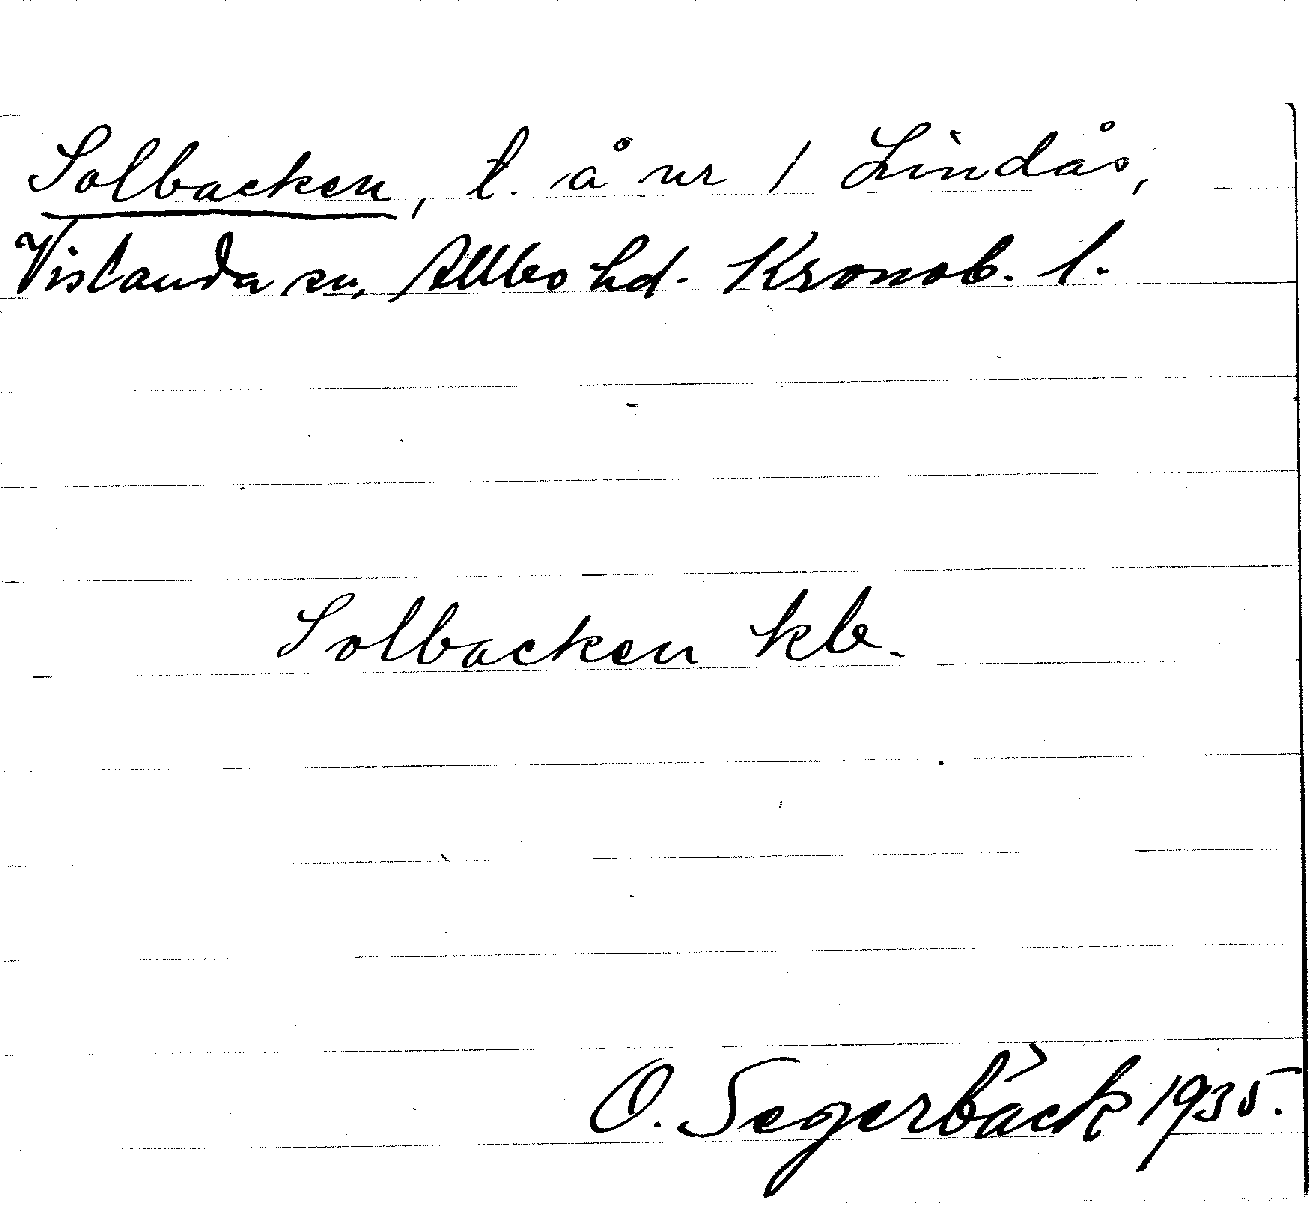 Solbacken, t. å nr 1 Lindås,
Vislanda sn, Allbo hd. Kronob. l.
Solbacken kb.
O. Segerbäck 1935.